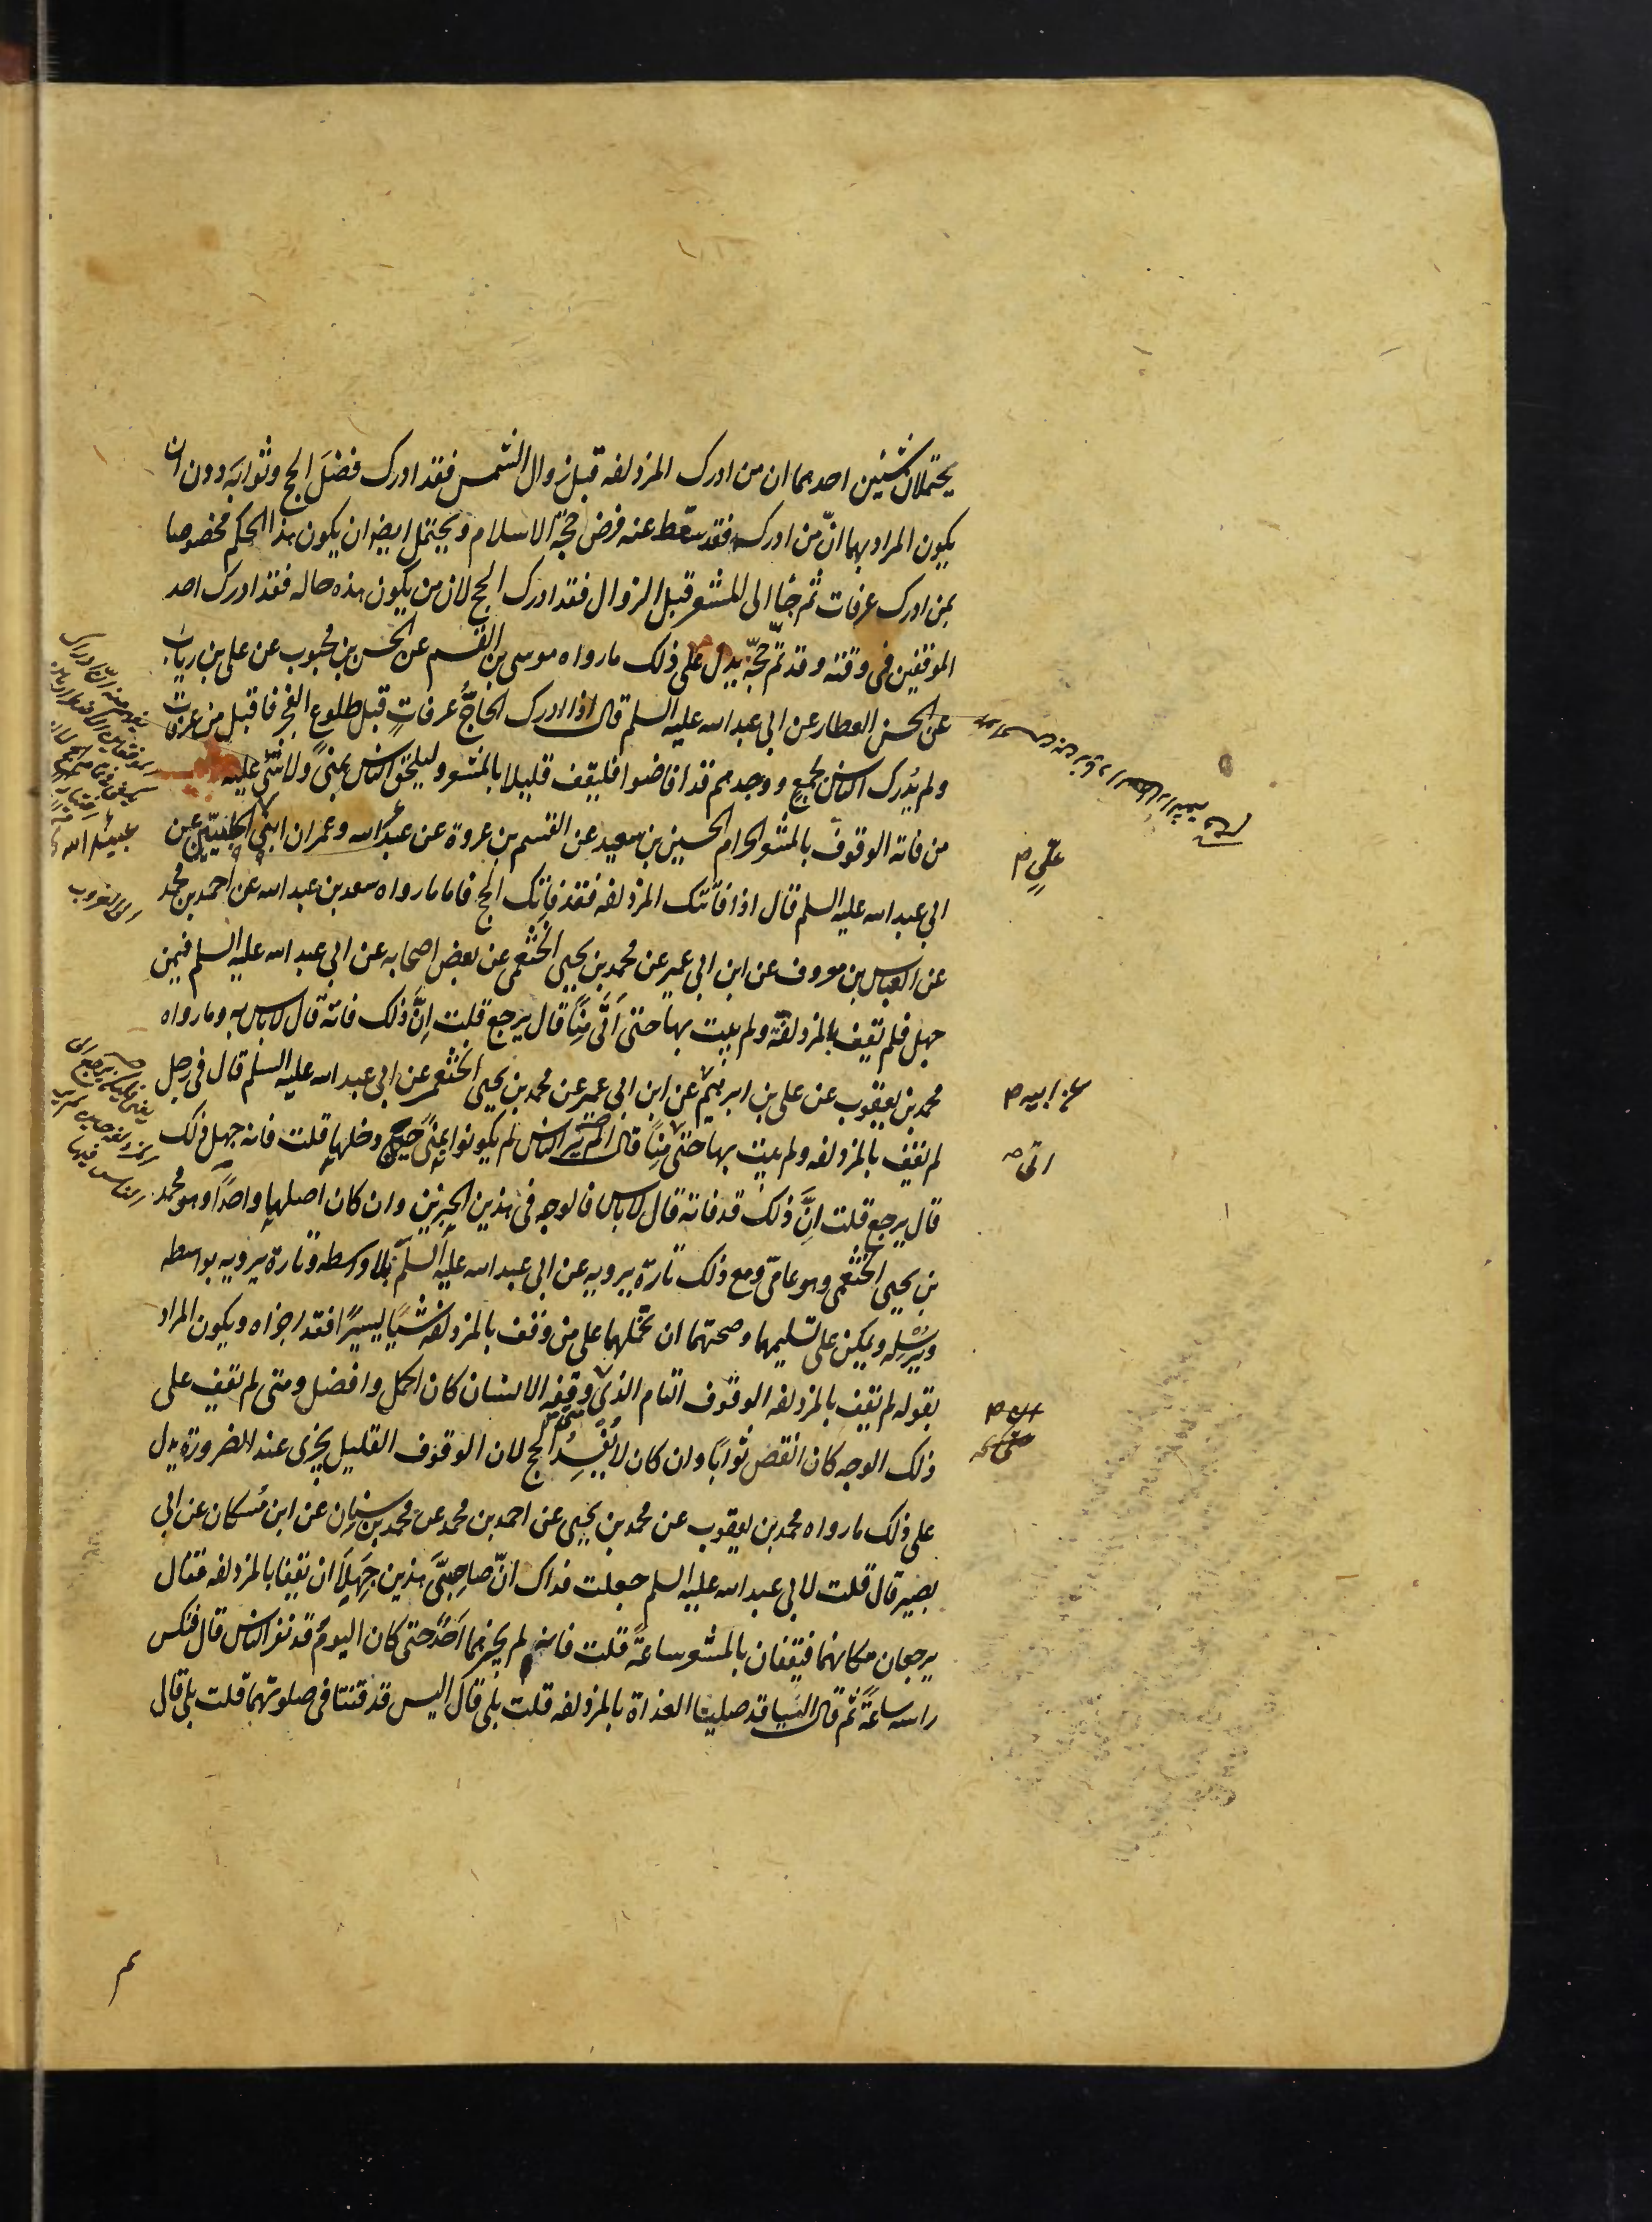 يحتملان شيئين احدهما ان من ادرك المزدلفه قبل زوال الشمس فقد ادرك فضلَ الحج وثوابَه دون ان
يكون المراد بهما انّ من ادرك فقد سقط عنه فرض حجّة الاسلام ويحتمل ايضا ان يكون هذا الحكم مخصوصا
بمن ادرك عرفات ثم جاء الى المشعر قبل الزوال فقد ادرك الحج لان من يكون هذه حاله فقد ادرك احد
الموقفين فى وقته وقد تمّ حجّه يدل على ذلك ما رواه موسى بن القسم عن الحسن بن محبوب عن على بن رياب
عن الحسن العطار عن ابى عبد الله عليه السلم قال اذا ادرك الحاجُّ عرفاتٍ قبل طلوع الفجر فاقبل من عرفات
ولم يُدرك الناس بجمعٍ ووجدهم قد افاضوا فليقف قليلا بالمشعر وليلحق الناس بمنىً ولا شئ عليه
من فاته الوقوف بالمشعر الحرام الحسين بن سعيد عن القسم بن عروة عن عبد الله وعمران ابنى الحلبيين عن
ابى عبد الله عليه السلم قال اذا فاتتك المزدلفه فقد فاتك الحج فاما ما رواه سعد بن عبد الله عن احمد بن محمد
عن العباس بن معروف عن ابن ابى عمير عن محمد بن يحيى الخثعمى عن بعض اصحابه عن ابى عبد الله عليه السلم فيمن
جهل فلم يقف بالمزدلفة ولم يبت بها حتى اَتَى مِنًا قال يرجع قلت اِنَّ ذلك فاته قال لا باس به وما رواه
محمد بن يعقوب عن على بن ابرهيم عن ابن ابى عمير عن محمد بن يحيى الخثعمى عن ابى عبد الله عليه السلم قال فى رجل
لم يقف بالمزدلفه ولم يبت بها حتى مِنًا قال الم ير الناس لم يكونوا بمنىً حين دخلها قلت فانه جهل ذلك
قال يرجع قلت اِنَّ ذلك قد فاته قال لا باس فالوجه فى هذين الخبرين وان كان اصلهما واحدًا وهو محمد
بن يحيى الخثعمى وهو عامىّ ومع ذلك تارة يرويه عن ابى عبد الله عليه السلم بلا واسطه وتارة يرويه بواسطه
ويُرْسِلُه ويمكن على تسليمهما وصحتهما ان تحملهما على من وقف بالمزدلفه شيئًا يسيرًا فقد اجزاه ويكون المراد
بقوله لم يقف بالمزدلفه الوقوف التام الذى وقفه الانسان كان اكمل وافضل ومتى لم يقف على
ذلك الوجه كان انقص ثوابًا وان كان لا يُفْسِدُ الحج لان الوقوف القليل يجزى عند الضرورة يدل
على ذلك ما رواه محمد بن يعقوب عن محمد بن يحيى عن احمد بن محمد عن محمد بن سنان عن ابن مُسكان عن ابى
بصير قال قلت لابى عبد الله عليه السلم جعلت فداك انّ صاحِبَىَّ هذين جَهِلَا ان يقفا بالمزدلفه فقال
يرجعان مكانهما فيقفان بالمشعر ساعةً قلت فانه لم يخبرهما اَحَدٌ حتى كان اليومُ قد نفر الناس قال فنكس
راسه ساعةً ثم قال اليسا قد صليا الغداة بالمزدلفه قلت بلى قال اليس قد قنتا فى صلوتهما قلت بلى قال
علىّ
عن ابيه
اتى
عبيد الله
الى الغروب